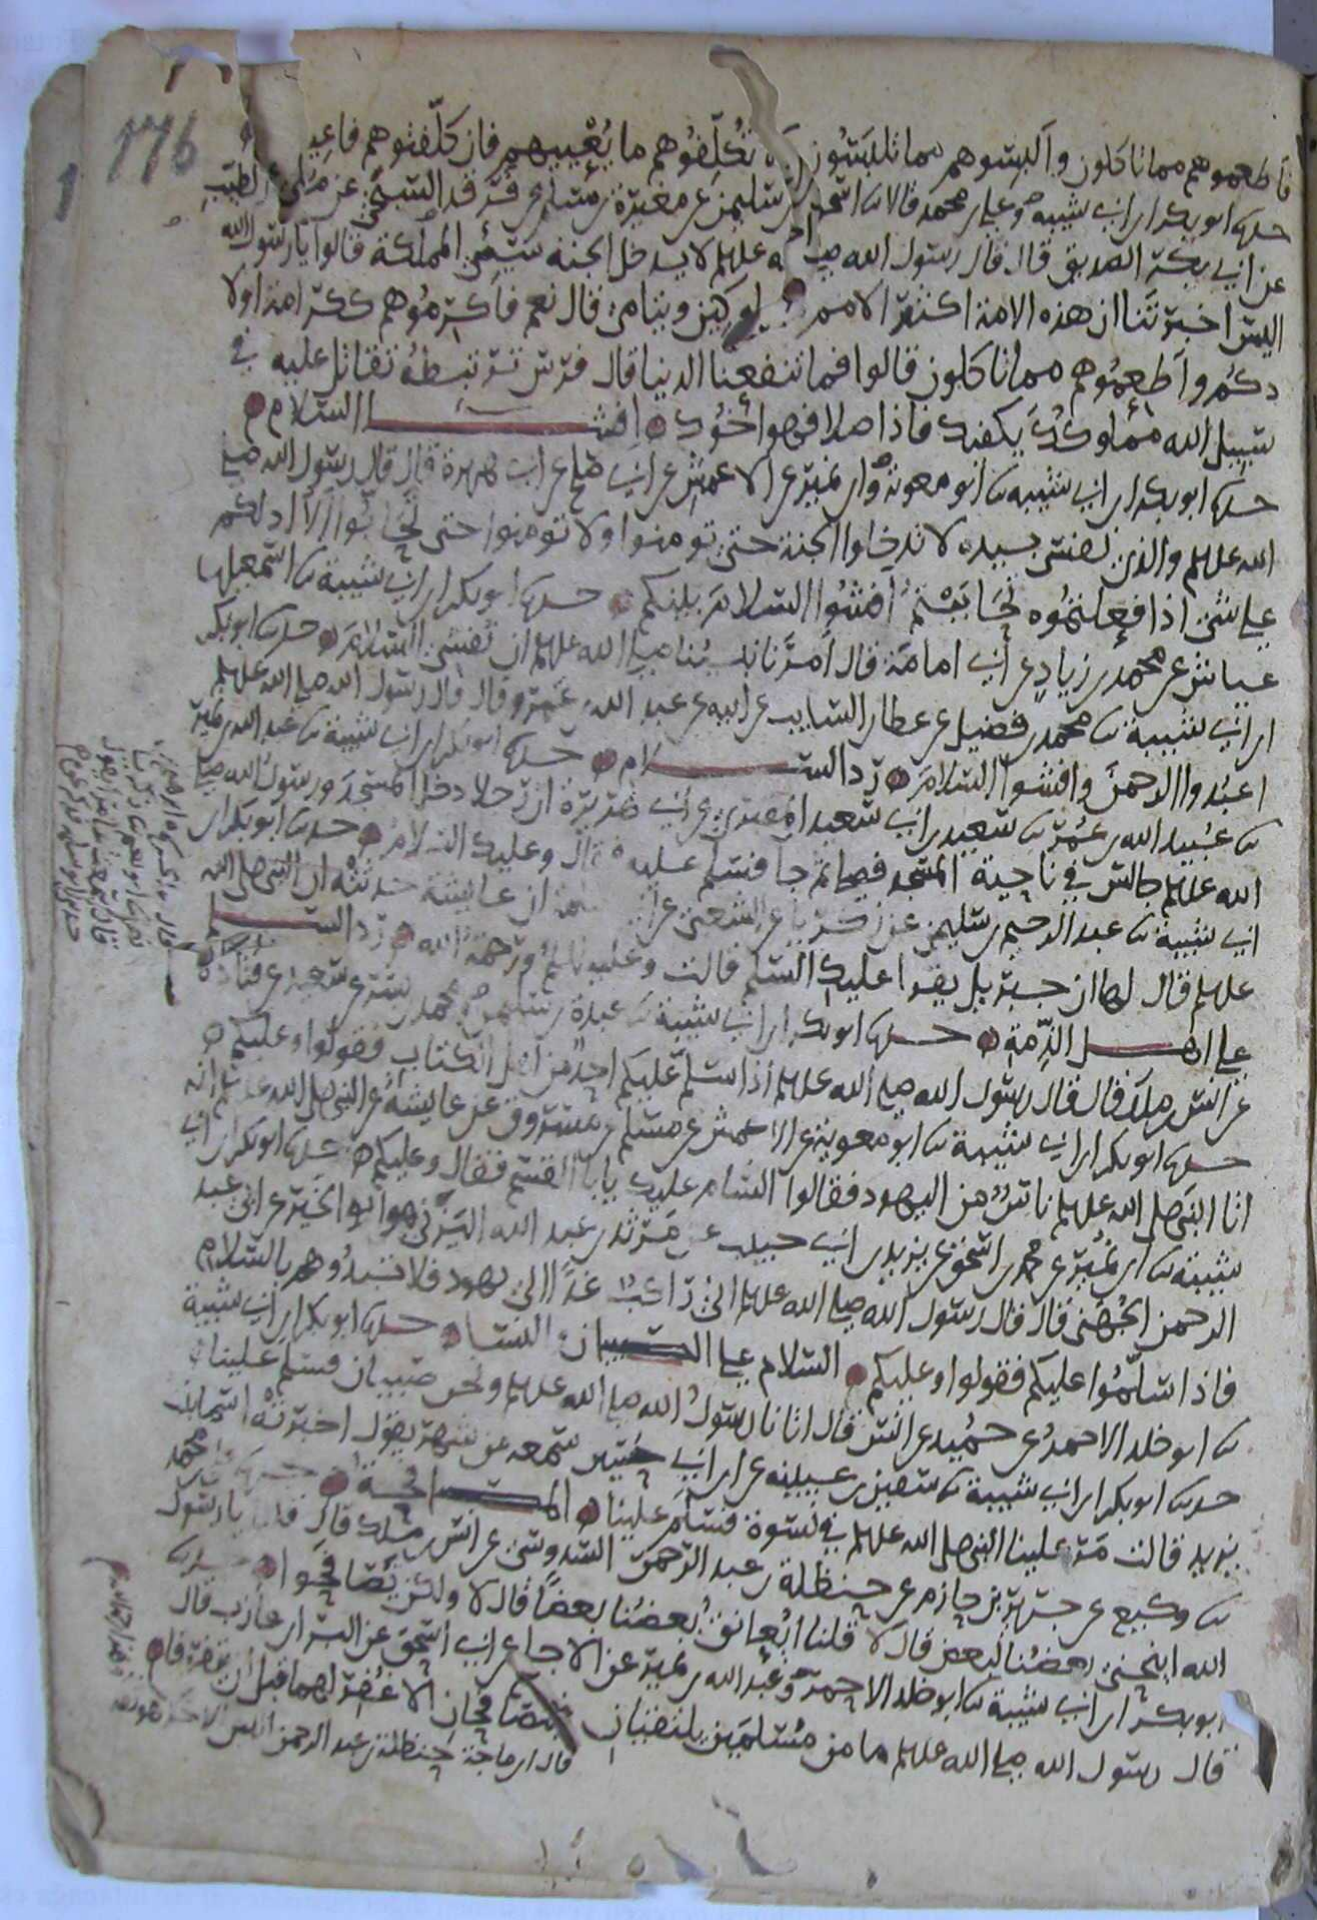 176
فاطعموهم مما تاكلون وألبسوهم مما تلبسون ولا تكلفوهم ما يعنيهم فان كلفتموهم فاعينوهم
حدثنا ابو بكر ابن ابي شيبة وعلي بن محمد قالا ثنا اسحق بن سليمن عن مغيرة بن مسلم عن فرقد السبخي عن مرة الطيب
عن ابي بكر الصديق قال قال رسول الله صلى الله عليه وسلم لا يدخل الجنة سيئ الملكة قالوا يا رسول الله
اليس اخبرتنا ان هذه الامة اكثر الامم مملوكين ويتامى قال نعم فاكرموهم ككرامة اولا
دكم وأطعموهم مما تاكلون قالوا فما تنفعنا الدنيا قال فرس ترتبطه تقاتل عليه في
سبيل الله مملوكك يكفيك فاذا صلا فهو أخوك افشا السلام
حدثنا ابو بكر ابن ابي شيبة ثنا ابو معوية وابن نمير عن الاعمش عن ابي صلح عن ابي هريرة قال قال رسول الله صلى
الله عليه وسلم والذي نفسي بيده لا تدخلوا الجنة حتى تومنوا ولا تومنوا حتى تحابوا ألا ادلكم
على شي اذا فعلتموه تحاببتم أفشوا السلام بينكم حدثنا ابو بكر ابن ابي شيبة ثنا اسمعيل بن
عياش عن محمد بن زياد عن أبي امامة قال أمرنا نبينا صلى الله عليه وسلم ان نفشي السلام حدثنا ابو بكر
ابن ابي شيبة ثنا محمد بن فضيل عن عطا بن السايب عن ابيه عن عبد الله بن عمرو قال قال رسول الله صلى الله عليه وسلم
اعبدوا الرحمن وافشوا السلام رد السلام حدثنا ابو بكر ابن ابي شيبة ثنا عبد الله بن نمير
ثنا عبيد الله بن عمر ثنا سعيد بن ابي سعيد المقبري عن ابي هريرة ان رجلا دخل المسجد ورسول الله صلى
الله عليه وسلم جالس في ناحية المسجد فصلى ثم جا فسلم عليه فقال وعليك السلام حدثنا ابو بكر ابن
ابي شيبة ثنا عبد الرحيم بن سليمن عن زكريا عن الشعبي عن ابي سلمة ان عايشة حدثته ان النبي صلى الله
عليه وسلم قال لها ان جبريل يقرا عليك السلم قالت وعليه السلم ورحمة الله رد السلم
على اهل الذمة حدثنا ابو بكر ابن ابي شيبة ثنا عبدة بن سليمن ومحمد بن بشر عن سعيد عن قتادة
عن انس بن ملك قال قال رسول الله صلى الله عليه وسلم اذا سلم عليكم احد من اهل الكتاب فقولوا وعليكم
حدثنا ابو بكر ابن ابي شيبة ثنا ابو معوية عن الاعمش عن مسلم عن مسروق عن عايشة عن النبي صلى الله عليه وسلم انه
اتا النبي صلى الله عليه وسلم ناس من اليهود فقالوا السام عليك يابا القسم فقال وعليكم حدثنا ابو بكر ابن ابي
شيبة ثنا ابن نمير عن محمد بن اسحق عن يزيد بن ابي حبيب عن مرثد بن عبد الله اليزني هو ابو الخير عن ابي عبد
الرحمن الجهني قال قال رسول الله صلى الله عليه وسلم اني راكب غدا الى يهود فلا تبدوهم بالسلام
فاذا سلموا عليكم فقولوا وعليكم السلام على الصبيان والنسا حدثنا ابو بكر ابن ابي شيبة
ثنا ابو خلد الاحمر عن حميد عن انس قال اتانا رسول الله صلى الله عليه وسلم ونحن صبيان فسلم علينا
حدثنا ابو بكر ابن ابي شيبة ثنا سفين بن عيينة عن ابن ابي حسين سمعه من شهر يقول اخبرته اسما بنت
يزيد قالت مر علينا النبي صلى الله عليه وسلم في نسوة فسلم علينا المصافحة حدثنا علي بن محمد
ثنا وكيع عن جرير بن حازم عن حنظلة بن عبد الرحمن السدوسي عن انس بن ملك قال قلنا يا رسول
الله اينحني بعضنا لبعض قال لا قلنا ايعانق بعضنا بعضا قال لا ولكن تصافحوا حدثنا
ابو بكر ابن ابي شيبة ثنا ابو خلد الاحمر وعبد الله بن نمير عن الاجلح عن ابي اسحق عن البرا بن عازب قال
قال رسول الله صلى الله عليه وسلم ما من مسلمين يلتقيان فيتصافحان الا غفر لهما قبل ان يتفرقا
قال ابن ماجة حنظلة بن عبد الرحمن